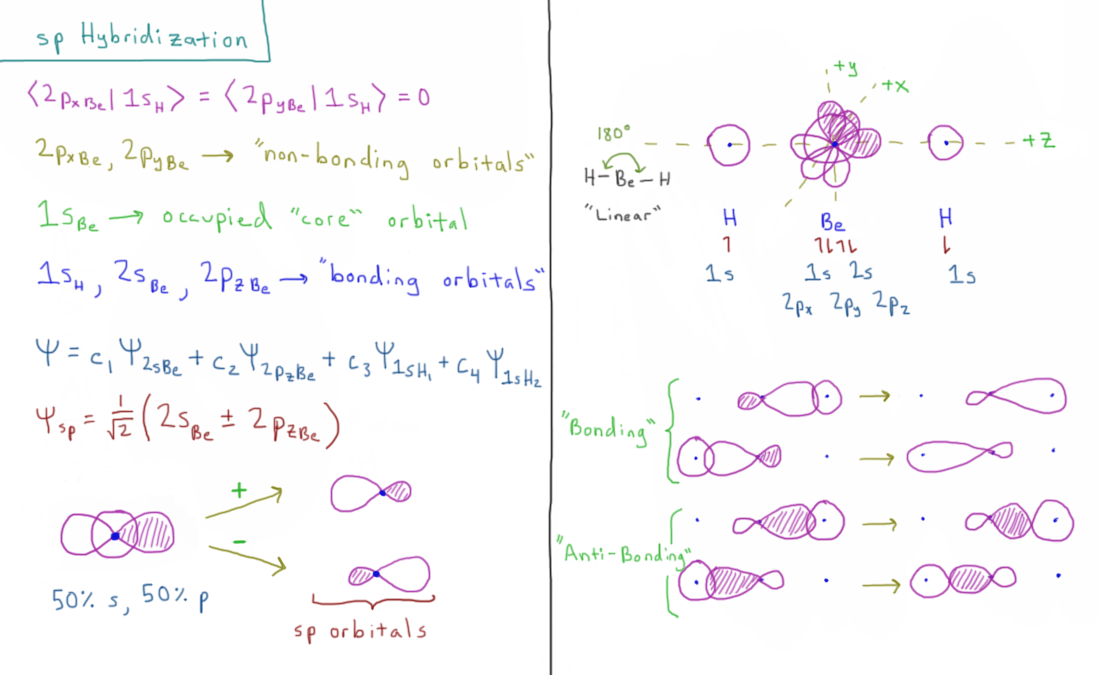 sp Hybridization
⟨2pxBe|1sH⟩ = ⟨2pyBe|1sH⟩ = 0
2pxBe, 2pyBe → "non-bonding orbitals"
1sBe → occupied "core" orbital
1sH, 2sBe, 2pzBe → "bonding orbitals"
Ψ = c₁Ψ2sBe + c₂Ψ2pzBe + c₃Ψ1sH₁ + c₄Ψ1sH₂
Ψsp = 1/√2 (2sBe ± 2pzBe)
+
-
50% s, 50% p
sp orbitals
+y
+x
+z
180°
H-Be-H
"Linear"
H Be H
↿ ↿⇂↿⇂ ⇂
1s 1s 2s 1s
2px 2py 2pz
"Bonding"
"Anti-Bonding"